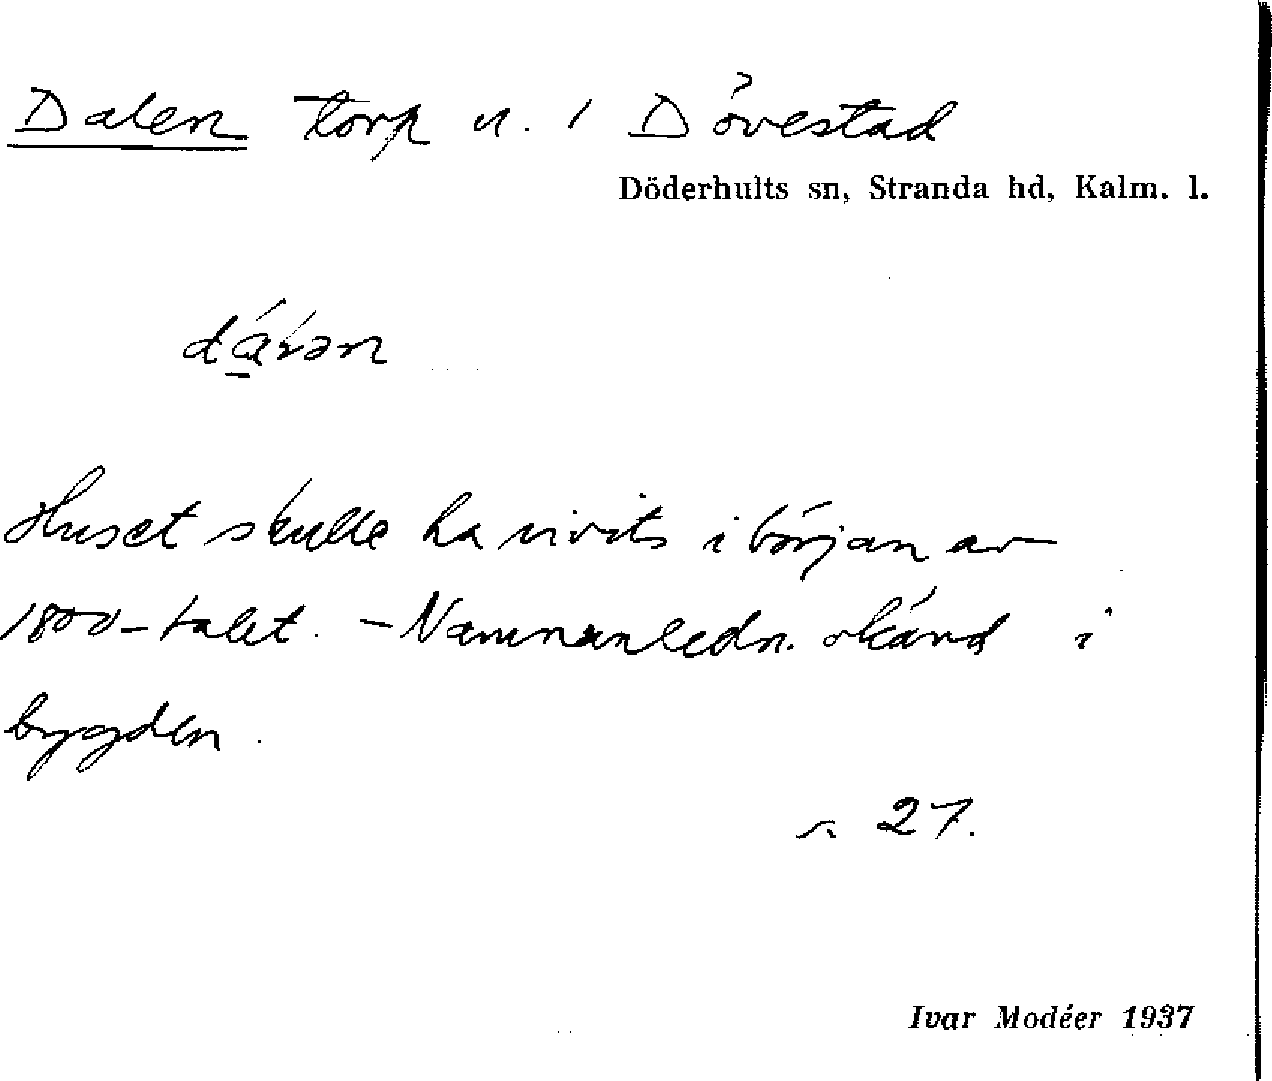 Dalen torp u. 1 Dövestad
Döderhults sn, Stranda hd, Kalm. l.
Huset skulle ha rivits i början av
1800-talet. – Namnanledn. okänd i
bygden.
s. 27.
Ivar Modéer 1937